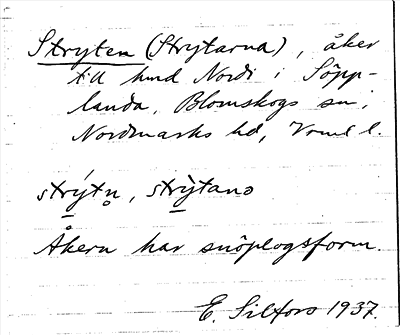 Stryten (Strytarna), åker
till hmd Nordi i Söpp-
landa, Blomskogs sn,
Nordmarks hd, Vrml l.
strýtn̥, strỳtano
Åkern har snöplogsform.
E. Silfors 1937.